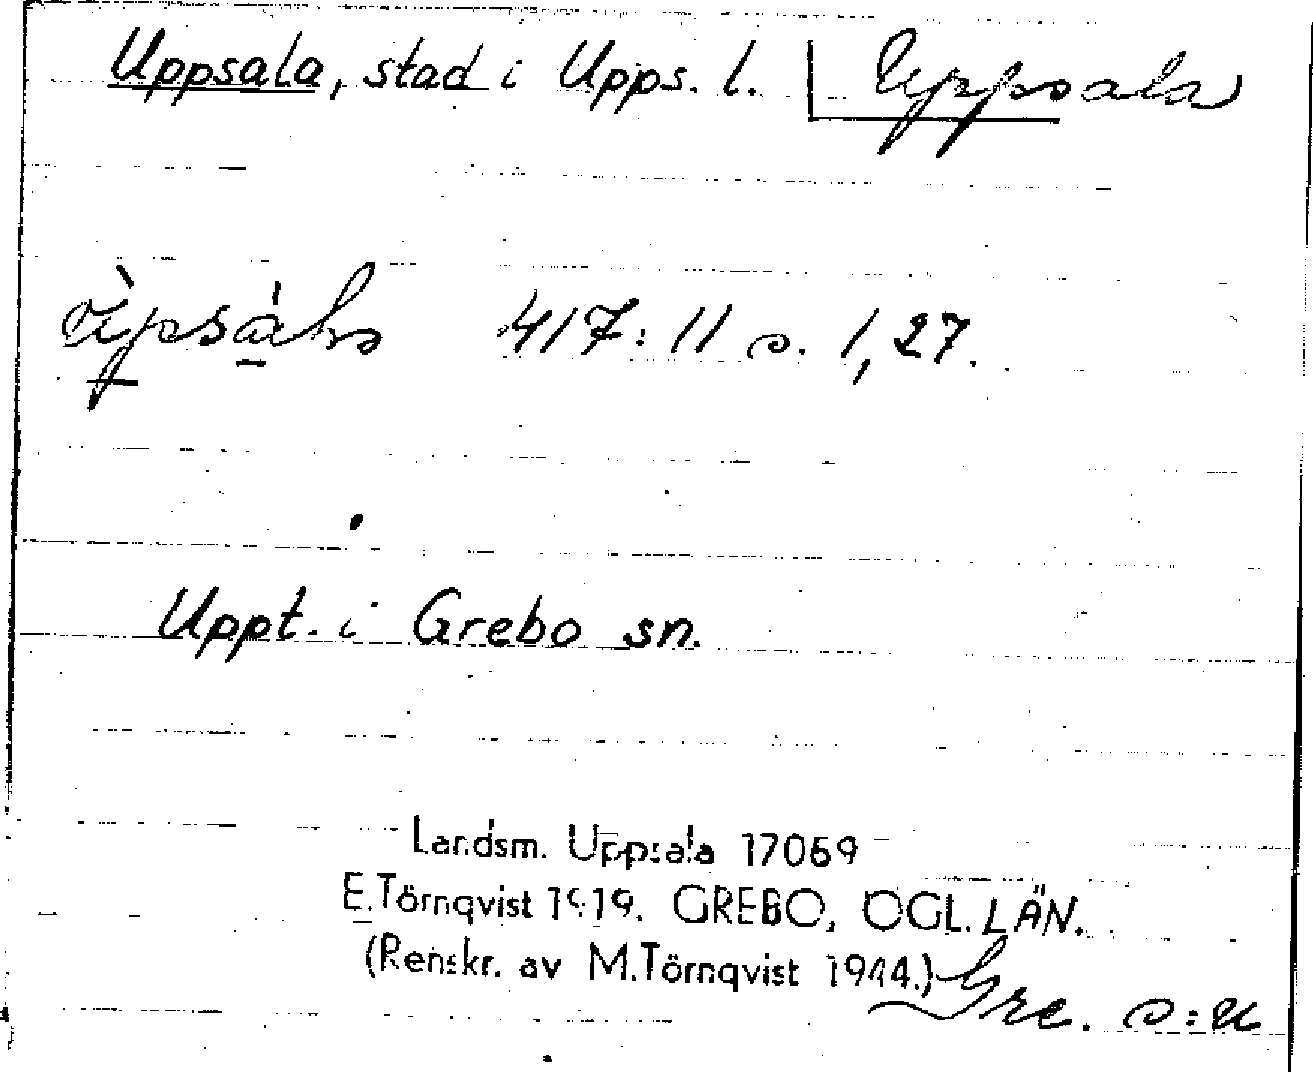 Uppsala, stad i Upps. l. Uppsala
417: 11 s. 1, 27.
Uppt. i Grebo sn.
Landsm. Uppsala 17069
E. Törnqvist 1919. GREBO, ÖGL. LÄN.
(Renskr. av M. Törnqvist 1944.)
Gre. s:n